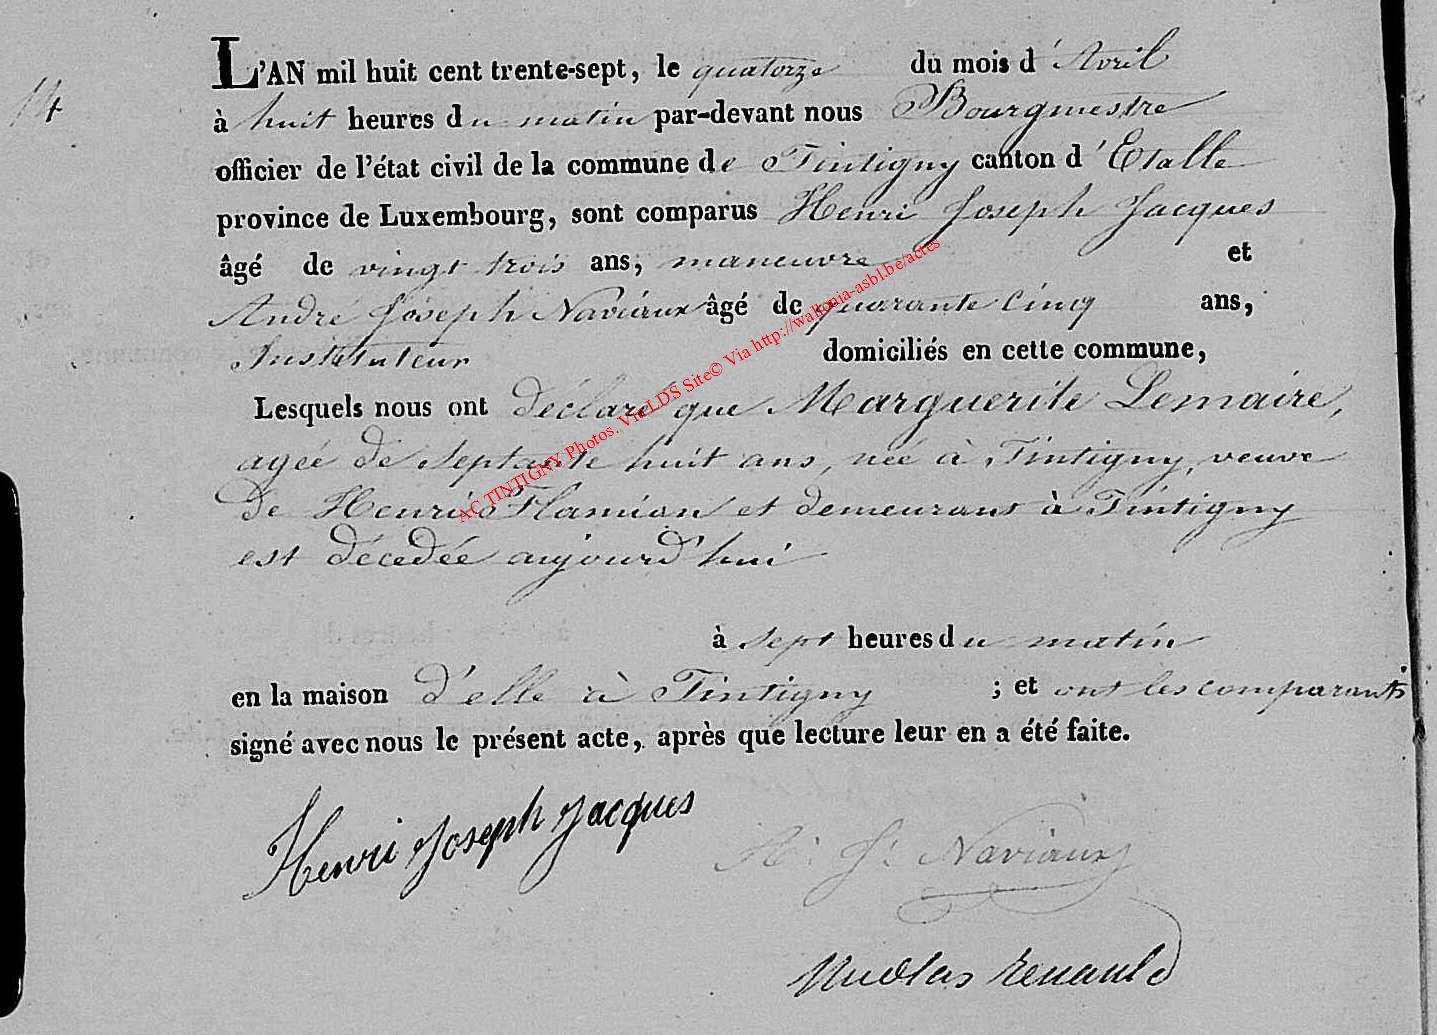 14
L'AN mil huit cent trente-sept, le quatorze du mois d'Avril
à huit heures du matin par-devant nous Bourgmestre
officier de l'état civil de la commune de Tintigny canton d'Etalle
province de Luxembourg, sont comparus Henri Joseph Jacques
âgé de vingt trois ans, maneuvre et
André Joseph Naviaux âgé de quarante cinq ans,
Instituteur domiciliés en cette commune,
Lesquels nous ont déclaré que Marguerite Lemaire,
agée de septante huit ans, née à Tintigny, veuve
de Henri Flamion et demeurant à Tintigny
est décédée aujourd'hui
à sept heures du matin
en la maison d'elle à Tintigny ; et ont les comparants
signé avec nous le présent acte, après que lecture leur en a été faite.
Henri Joseph Jacques
A. J. Naviaux
Nicolas Renauld
AC TINTIGNY Photos. Via LDS Site© Via http://wallonia-asbl.be/actes